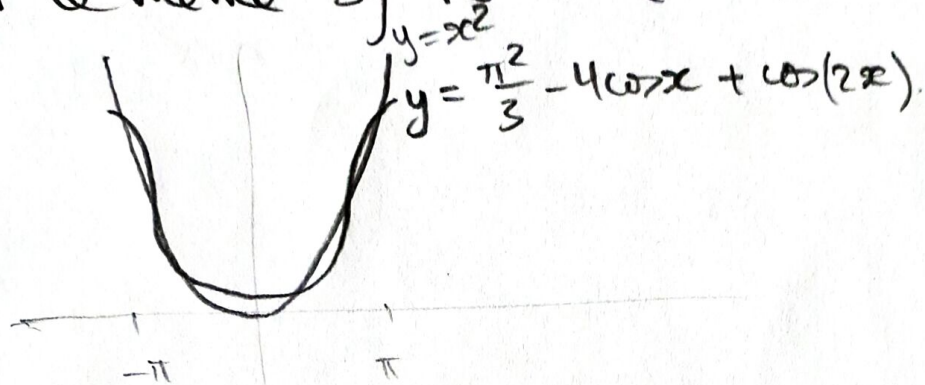 y=x²
y = π²/3 - 4cosx + cos(2x).
-π π